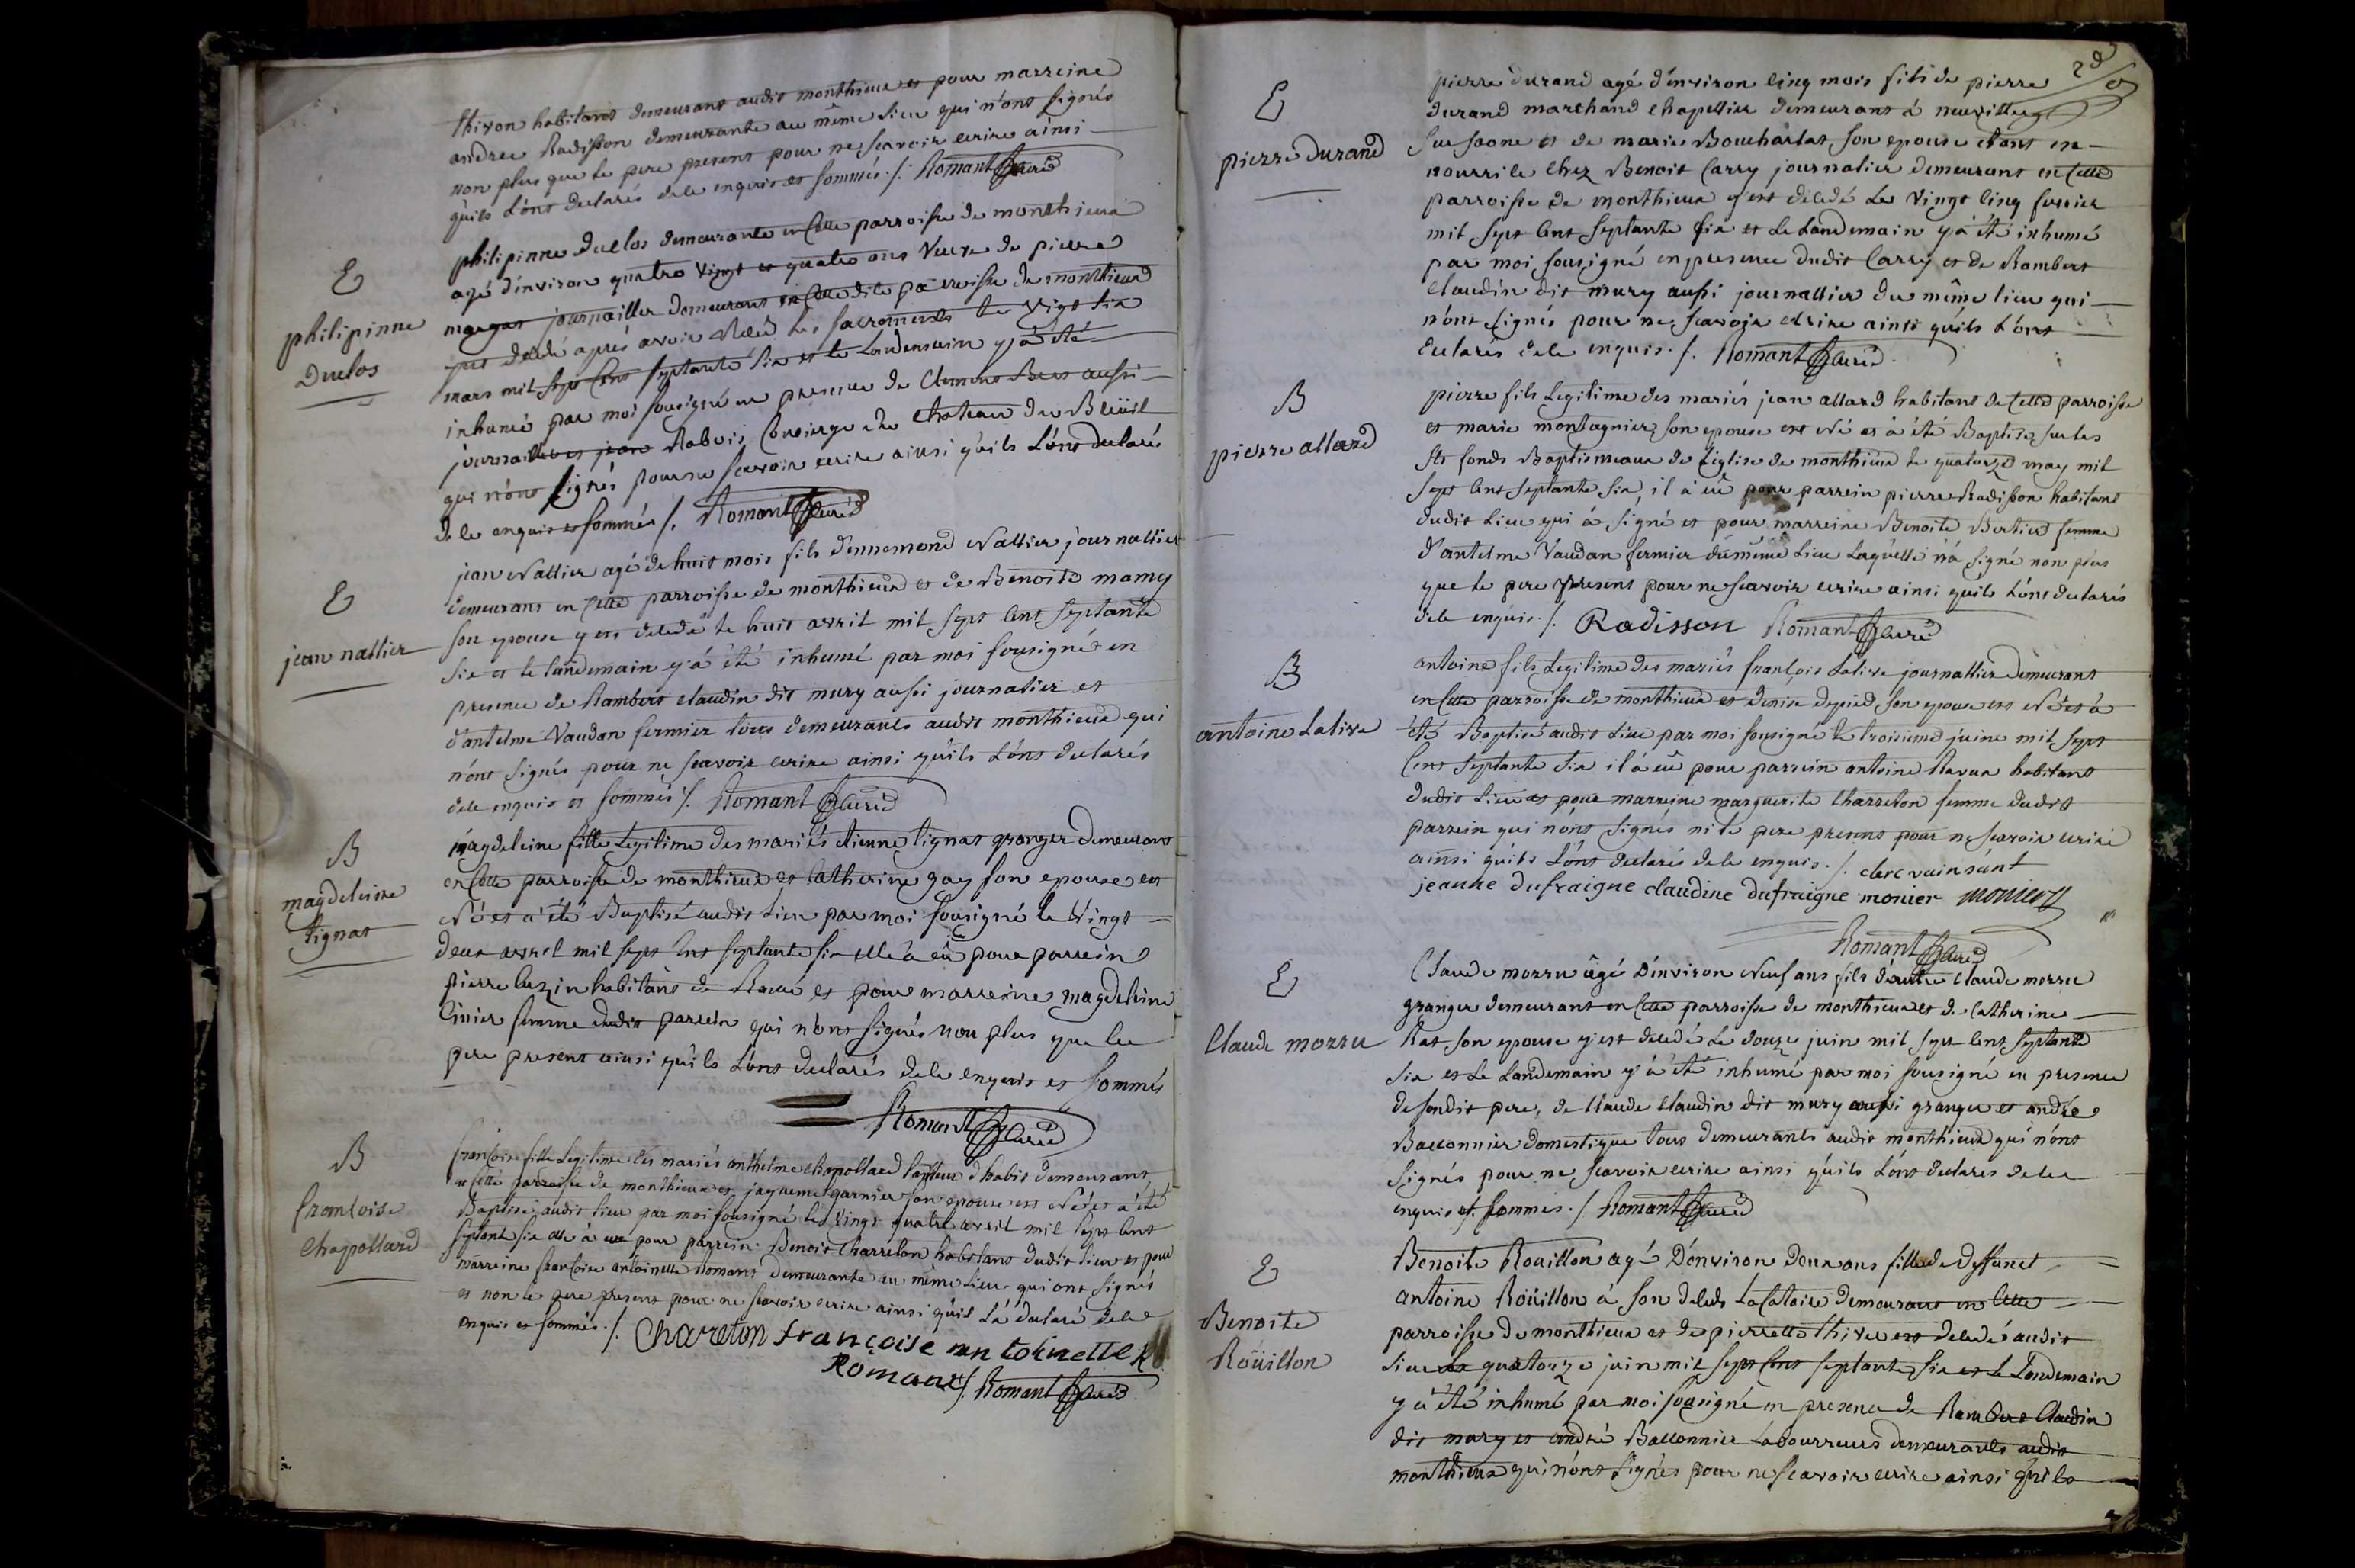 thivon habitants demeurans audit monthieux et pour marreine
andree Radisson demeurante au même lieu qui n'ont signés
non plus que le pere present pour ne scavoir ecrire ainsi
quils l'ont declarés de le enquis et sommés ./. Romant curé
E
philipinne
Duclos
philipinne duclos demeurante en cette parroisse de monthieux
agé d'environ quatre vingt et quatre ans veuve de pierre
journaillier demeurant en cette dite parroisse de monthieux
y est decedé aprés avoir Reçu les sacrements le vigt six
mars mil sept cens septante six et le landemain y á été
inhumé par moi sousigné en presence de Clement aussi
journaillier et jean Rabois Concierge du chateau du Breüil
qui n'ont signés pour ne scavoir ecrire ainsi quils l'ont declarés
de le enquis et sommés /. Romant curé
E
jean nallier
jean Nallier agé de huit mois fils d'ennemond Nallier journallier
demeurans en cette parroisse de monthieux et de Benoite mamy
son epouse y est decedé le huit avril mil sept cent septante
six et le landemain y á été inhumé par moi sousigné en
presence de Rambert claudin dit mury aussi journalier et
d'antelme Vaudan fermier tous demeurants audit monthieux qui
n'ont signés pour ne scavoir ecrire ainsi qu'ils l'ont declarés
de le enquis et sommés /. Romant curé
B
magdeleine
tignat
magdeleine fille legitime des mariés etienne tignat granger demeurant
en cette parroisse de monthieux et Catherine gay son epouse est
Né et a été Baptisé audit lieu par moi sousigné le vingt
deux avril mil sept cens septante six elle à eü pour parrein
pierre luzin habitans de et pour marreine magdeleine
Cinier femme dudit parrein qui n'ont signés non plus que le
pere present ainsi quils l'ont declarés de le enquis et sommés
Romant curé
B
francoise
chapollard
francoise fille legitime des mariés anthelme chapollard tailleur d'habit demeurant
en cette parroisse de monthieux et jaqueme garnier son epouse est Né et à été
Baptisé audit lieu par moi sousigné le vingt quatre avril mil sept cens
septante six elle à eue pour parrein Benoit Charreton habitans dudit lieu et pour
marreine francoise antoinette Romant demeurante au même lieu qui ont signés
et non le pere present pour ne scavoir ecrire ainsi qu'il l'á declaré de le
enquis et sommés ./. Charreton françoise antoinette
Romant /. Romant curé
E
pierre durand
pierre durand agé d'environ cinq mois fils de pierre
durand marchand chapellier demeurant á neuville
sur saone et de marie Boucharlat son epouse etant en
nourrice chez Benoit Carry journalier demeurant en cette
parroisse de monthieux y est decedé le vingt cinq fevrier
mil sept cens septante six et le landemain y á été inhumé
par moi sousigné en presence dudit Carry et de Rambert
claudin dit mury aussi journallier du même lieu qui
n'ont signés pour ne scavoir ecrire ainsi qu'ils l'ont
declarés de le enquis ./. Romant curé
B
pierre allard
pierre fils legitime des mariés jean allard habitant de cette parroisse
et marie montagnier son epouse est né et à été Baptisé sur les
sts fonds Baptismeaux de l'eglise de monthieux le quatorze may mil
sept cens septante six, il à eü pour parrein pierre Radisson habitant
dudit lieu qui á signé et pour marreine Benoite Bertier femme
d'antelme Vaudan fermier du même lieu laquelle n'á signé non plus
que le pere present pour ne scavoir ecrire ainsi qu'ils l'ont declarés
de le enquis ./. Radisson Romant curé
B
antoine Lative
antoine fils legitime des mariés francois Lative journallier demeurant
en cette parroisse de monthieux et denise depied son epouse est Né et à
été Baptisé audit lieu par moi sousigné le troisieme juine mil sept
cens septante six il á eü pour parrein antoine Ravux habitant
dudit lieu et pour marreine marguerite Charreton femme dudit
parrein qui n'ont signés ni le pere present pour ne scavoir ecrire
ainsi qu'ils l'ont declarés de le enquis ./. clerc vainsant
jeanne dufraigne claudine dufraigne monier monier
Romant curé
E
Claude morru
Claude morru âgé d'environ neuf ans fils d'autre Claude morru
granger demeurant en cette parroisse de monthieux et de Catherine
Rat son epouse y est decedé le douze juin mil sept cent septante
six et le landemain y á été inhumé par moi sousigné en presence
de sondit pere, de claude claudin dit mury aussi granger et andré
Baconnier domestique tous demeurants audit monthieux qui n'ont
signés pour ne scavoir ecrire ainsi qu'ils l'ont declarés de le
enquis et sommés ./. Romant curé
E
Benoite
Roüillon
Benoite Rouillon agé d'environ deux ans fille de deffunct
antoine Roüillon à son deceds locataire demeurant en cette
parroisse de monthieux et de pierrette thivel est decedé audit
lieu le quatorze juin mil sept cent septante six et le landemain
y á été inhumé par moi sousigné en presence de Rambert Claudin
dit mury et andré Baconnier labourreurs demeurants audit
monthieux qui n'ont signés pour ne scavoir ecrire ainsi quils